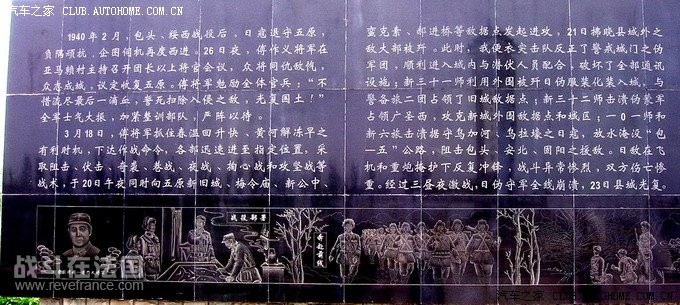 汽车之家 CLUB.AUTOHOME.COM.CN
1940年2月,包头、绥西战役后,日寇退守五原,
负隅顽抗,企图伺机再度西进。26日夜,傅作义将军在
亚马赖村主持召开团长以上将官会议,众将同仇敌忾,
众志成城,议定收复五原。傅将军勉励全体官兵:“不
惜流尽最后一滴血,誓死扫除入侵之敌,光复国土!”
全军士气大振,加紧整训部队,严阵以待。
3月18日,傅将军抓住春温回升快、黄河解冻早之
有利时机,下达作战命令,各部迅速进至指定位置,采
取阻击、伏击、奇袭、巷战、夜战、掏心战和攻坚战等
战术,于20日午夜同时向五原新旧城、梅令庙、新公中、
蛮克素、郝进桥等敌据点发起进攻,21日拂晓县城外之
敌大部被歼。此时,我便衣突击队反正了警戒城门之伪
军团,顺利进入城内与潜伏人员配合,破坏了全部通讯
设施;新三十一师利用外围被歼日伪服装化装入城,与
警备旅二团占领了旧城敌据点;新三十二师击溃伪蒙军
占领广圣西,攻克新城外围敌据点和城区;一0一师和
新六旅击溃据守乌加河、乌拉壕之日寇,放水淹没“包
—五”公路,阻击包头、安北、固阳之援敌。日敌在飞
机和重炮掩护下反复冲锋,战斗异常惨烈,双方伤亡惨
重。经过三昼夜激战,日伪守军全线崩溃,23日县城光复。
战役部署
奔赴前线
战斗在法国
www.revefrance.com
汽车之家 CLUB.AUTOHOME.COM.CN